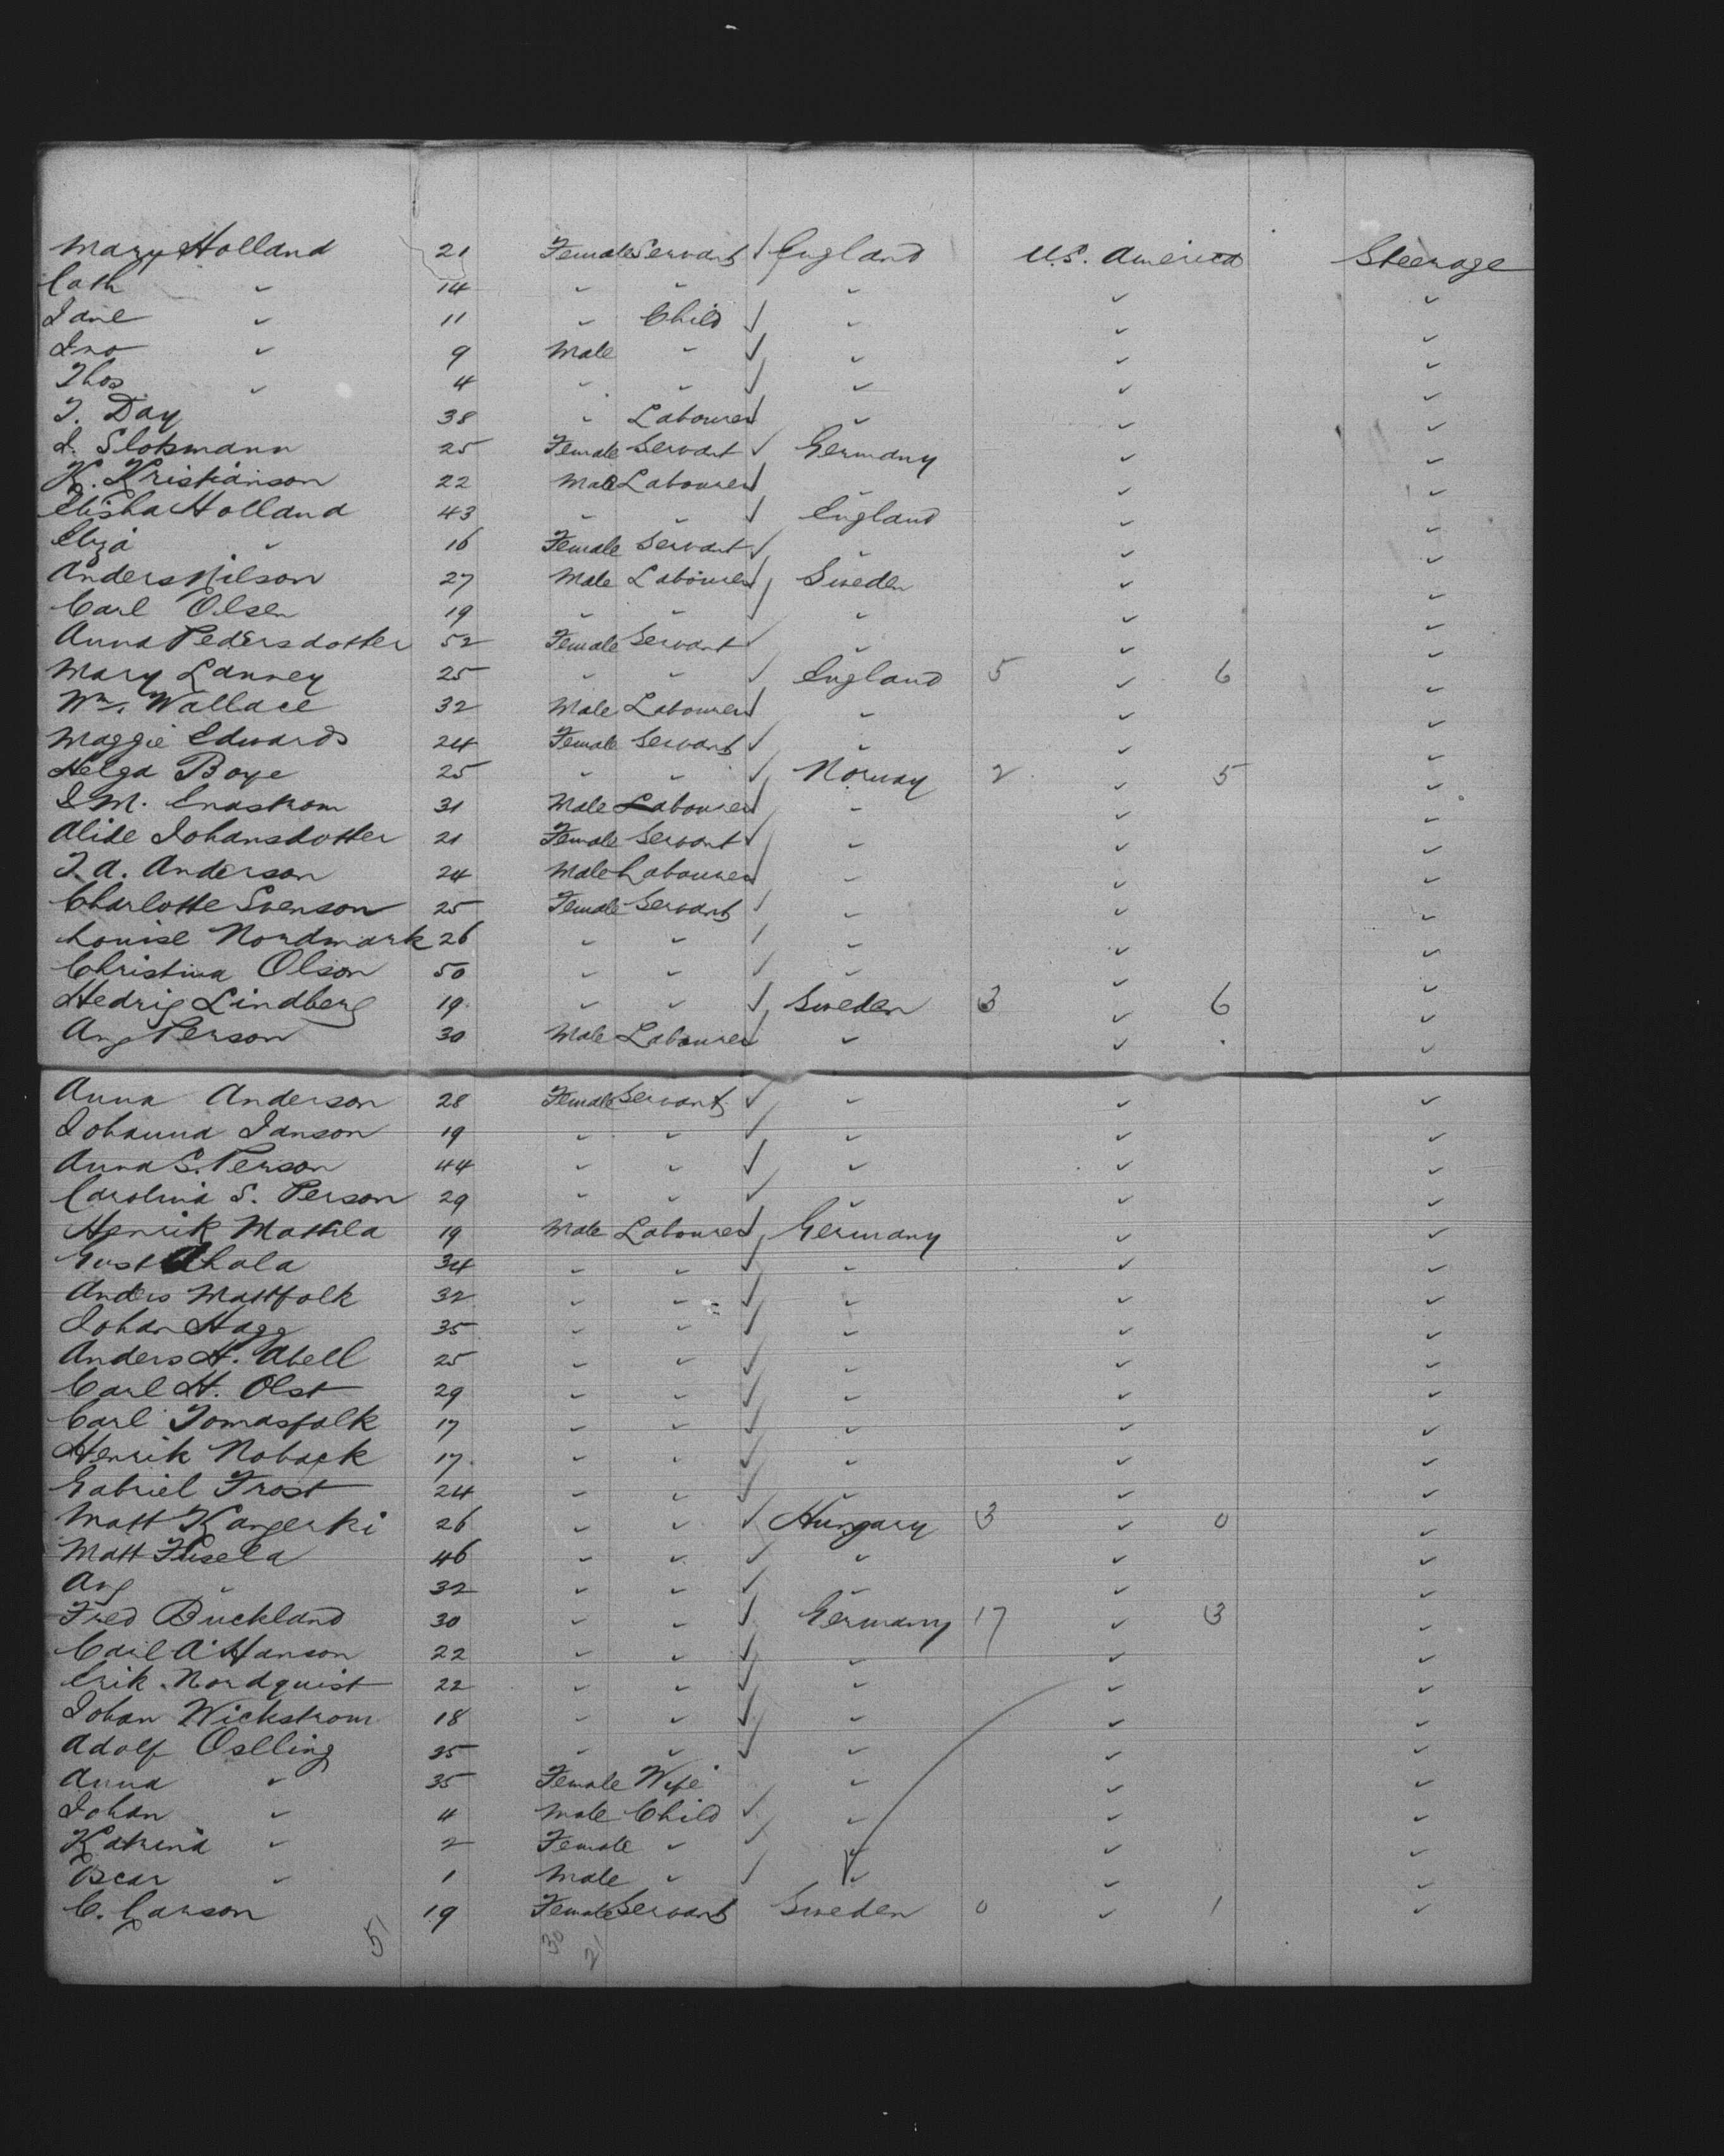 Mary Holland 21 Female Servant England U.S. America Steerage
Cath " 14 " " " " "
Jane " 11 " Child " " "
Jno " 9 Male " " " "
Thos " 4 " " " " "
T. Day 38 " Labourer " " "
Slotsmann 25 Female Servant Germany " "
K. Kristianson 22 Male Labourer " " "
Elisha Holland 43 " " England " "
Eliza " 16 Female Servant " " "
Anders Nilson 27 Male Labourer Sweden " "
Carl Olsen 19 " " " " "
Anna Pedersdotter 52 Female Servant " " "
Mary Lanney 25 " " England 5 " 6 "
Wm. Wallace 32 Male Labourer " " "
Maggie Edwards 24 Female Servant " " "
Helga Boye 25 " " Norway 2 " 5 "
J. M. Enastrom 31 Male Labourer " " "
Alide Johansdotter 21 Female Servant " " "
J. A. Anderson 24 Male Labourer " " "
Charlotte Svenson 25 Female Servant " " "
Louise Nordmark 26 " " " " "
Christina Olson 50 " " " " "
Hedvig Lindberg 19 " " Sweden 3 " 6 "
Aug Person 30 Male Labourer " " "
Anna Anderson 28 Female Servant " " "
Johanna Janson 19 " " " " "
Anna S. Person 44 " " " " "
Carolina S. Person 29 " " " " "
Henrik Mattila 19 Male Labourer Germany " "
Gust Ahola 34 " " " " "
Anders Mattfolk 32 " " " " "
Johan Hagg 35 " " " " "
Anders H. Abell 25 " " " " "
Carl H. Olst 29 " " " " "
Carl Tomasfolk 17 " " " " "
Henrik Noback 17 " " " " "
Gabriel Frost 24 " " " " "
Matt Kangerki 26 " " Hungary 3 " 0 "
Matt 46 " " " " "
Aug " 32 " " " " "
Fred Buckland 30 " " Germany 17 " 3 "
Carl A. Hanson 22 " " " " "
Erik Nordquist 22 " " " " "
Johan Wickstrom 18 " " " " "
Adolf Oslling 35 " " " " "
Anna " 35 Female Wife " " "
Johan " 4 Male Child " " "
Katrina " 2 Female " " " "
Oscar " 1 Male " " " "
C. Carson 19 Female Servant Sweden 0 " 1 "
51 30 21